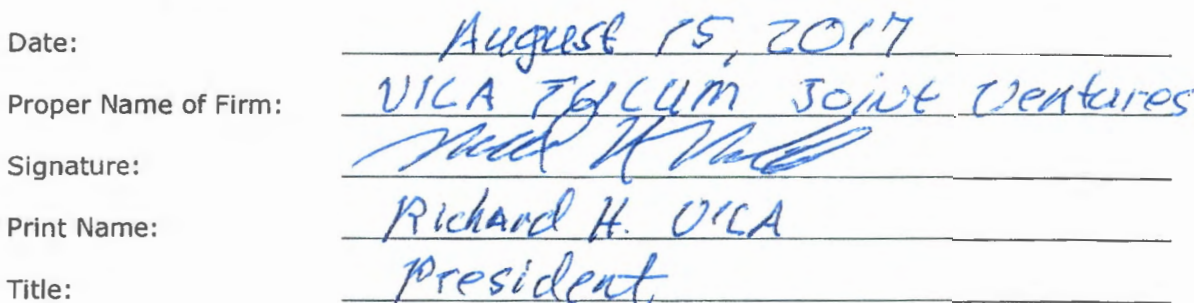 Date: August 15, 2017
Proper Name of Firm: VILA Joint Ventures
Signature:
Print Name: Richard H. VILA
Title: President